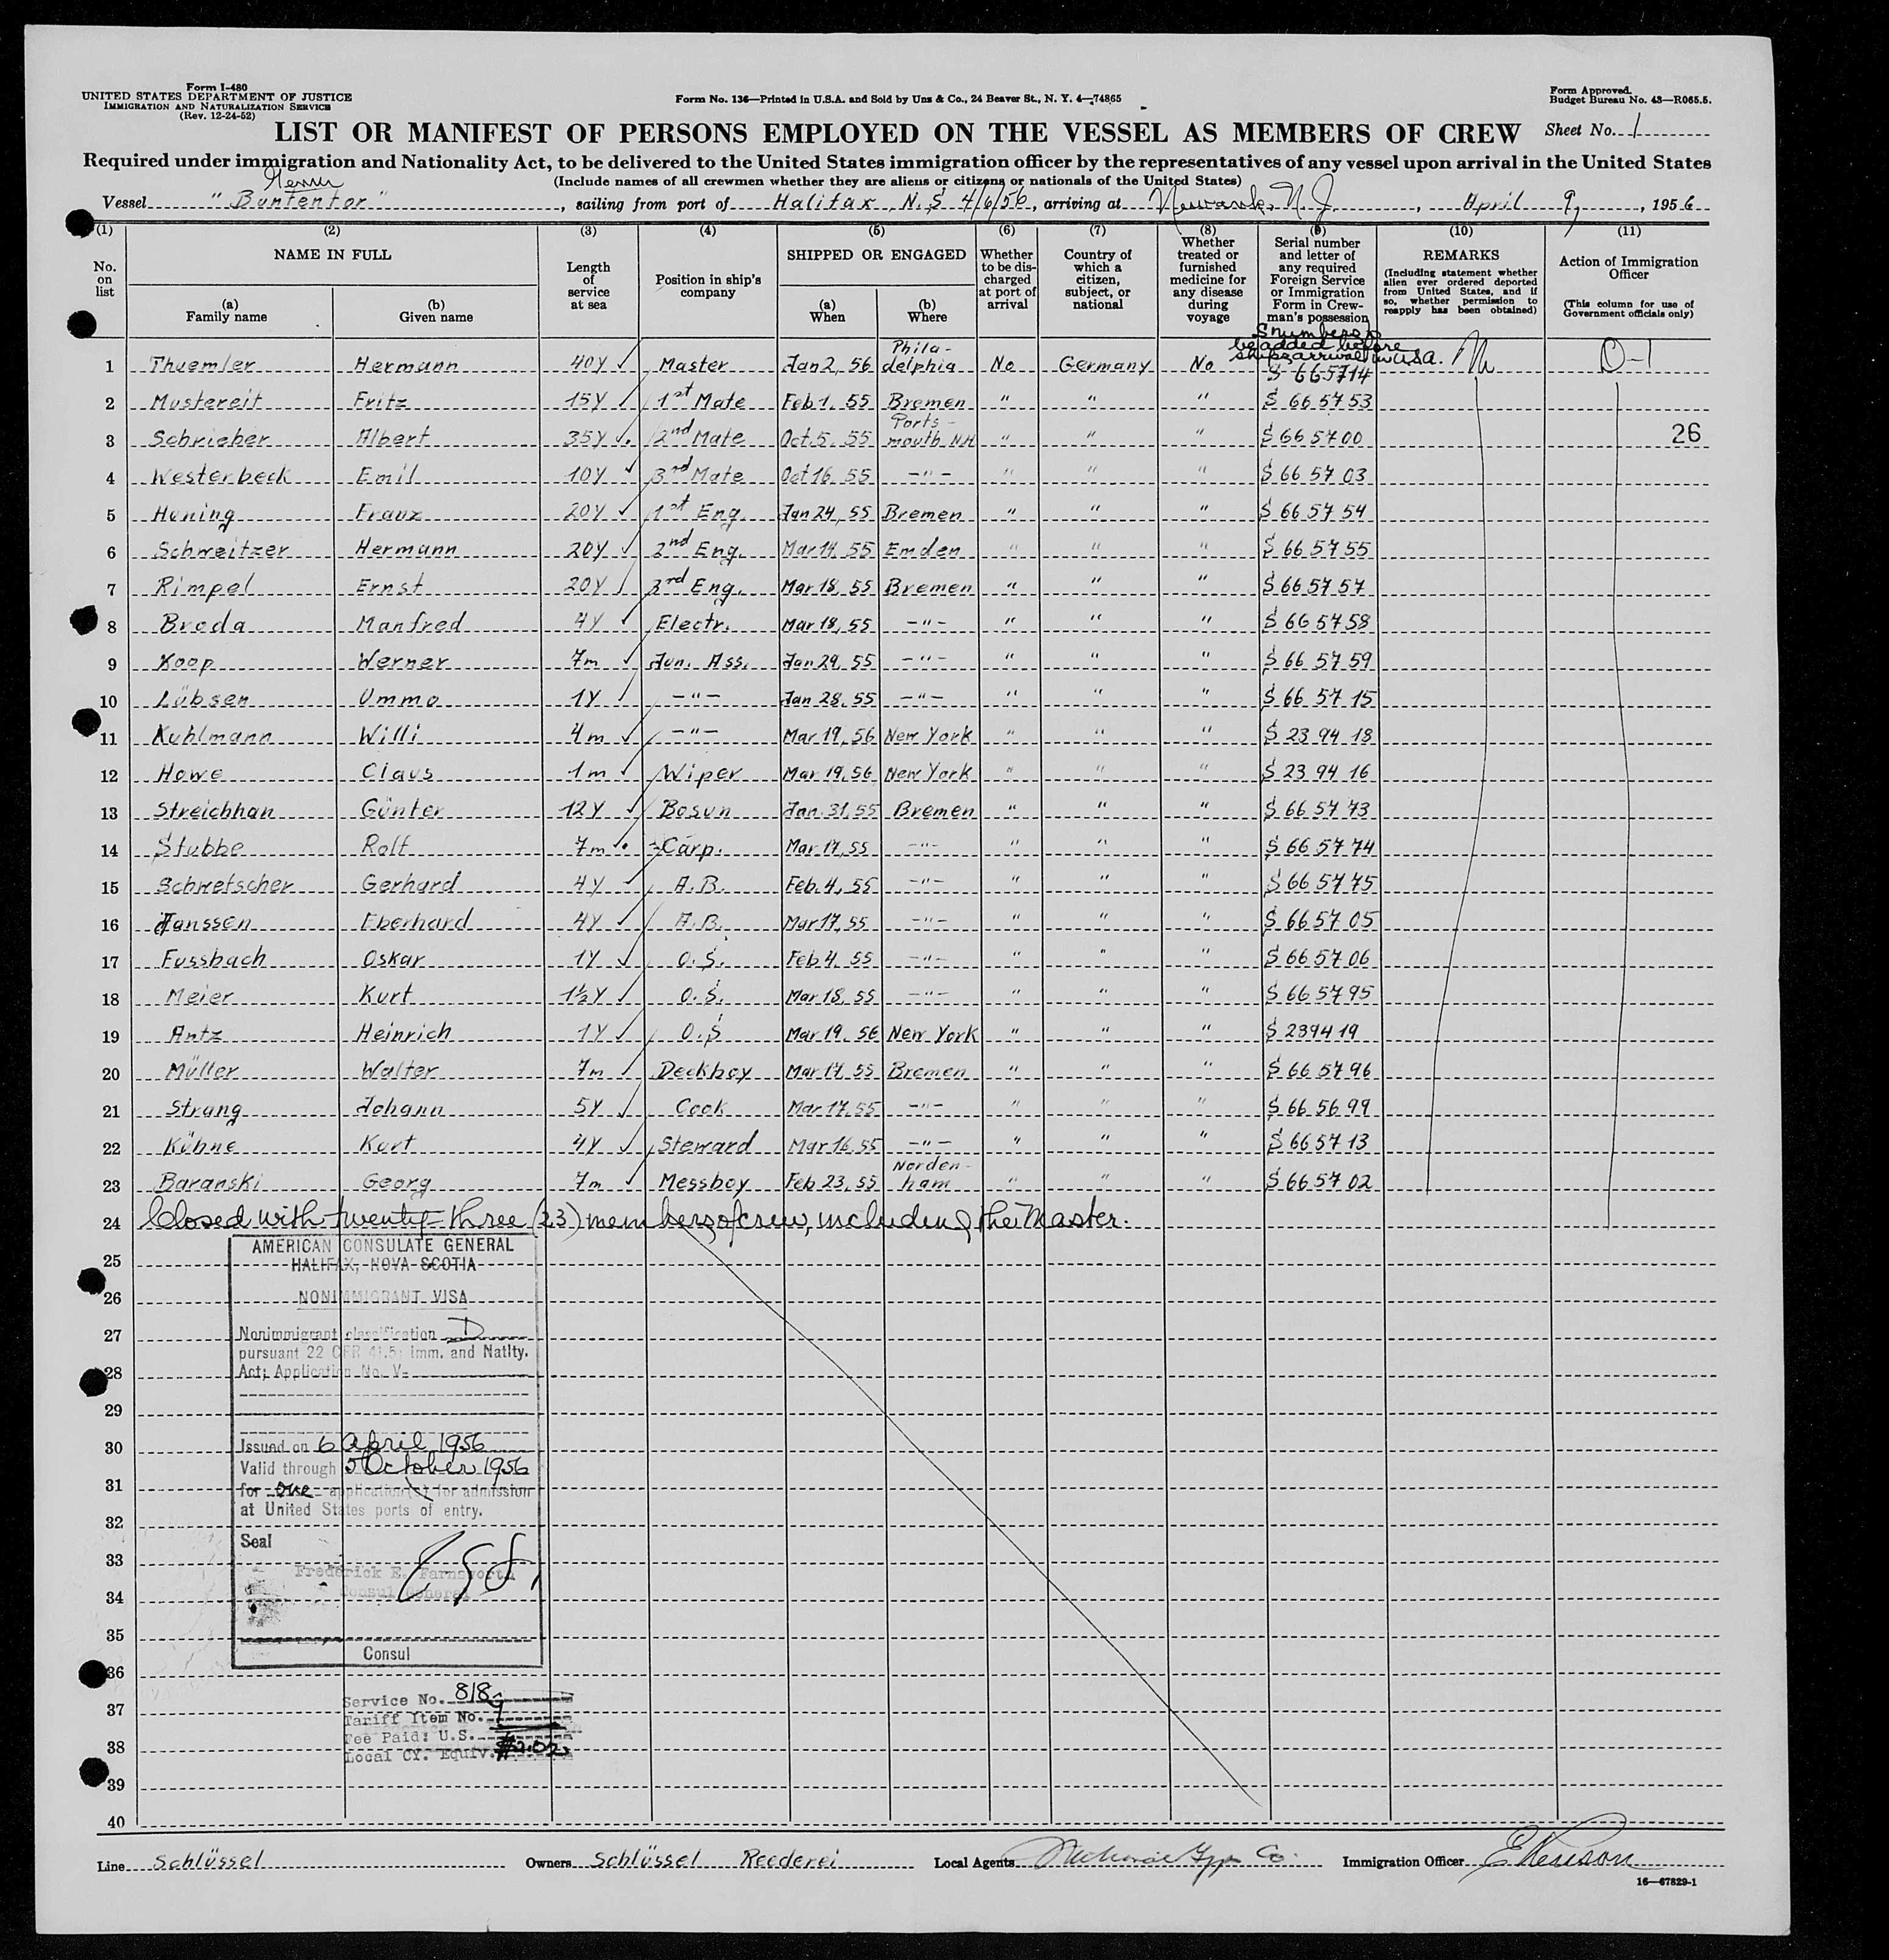 Form I-480
UNITED STATES DEPARTMENT OF JUSTICE
IMMIGRATION AND NATURALIZATION SERVICE
(Rev. 12-24-52)
Form No. 136—Printed in U.S.A. and Sold by Unz & Co., 24 Beaver St., N. Y. 4—74865
Form Approved.
Budget Bureau No. 43—R065.5.
LIST OR MANIFEST OF PERSONS EMPLOYED ON THE VESSEL AS MEMBERS OF CREW Sheet No. 1
Required under immigration and Nationality Act, to be delivered to the United States immigration officer by the representatives of any vessel upon arrival in the United States
(Include names of all crewmen whether they are aliens or citizens or nationals of the United States)
Vessel "Buntentor", sailing from port of Halifax, N.S 4/6/56, arriving at Newark, N.J., April 9, 1956
(1) (2) (3) (4) (5) (6) (7) (8) (9) (10) (11)
No. on list
NAME IN FULL
(a) Family name
(b) Given name
Length of service at sea
Position in ship's company
SHIPPED OR ENGAGED
(a) When
(b) Where
Whether to be discharged at port of arrival
Country of which a citizen, subject, or national
Whether treated or furnished medicine for any disease during voyage
Serial number and letter of any required Foreign Service or Immigration Form in Crewman's possession
REMARKS
(Including statement whether alien ever ordered deported from United States, and if so, whether permission to reapply has been obtained)
Action of Immigration Officer
(This column for use of Government officials only)
S numbers to
be added before
ships arrival in USA.
1 Thuemler Hermann 40Y Master Jan 2, 56 Phila-delphia No Germany No S 665714 D-1
2 Mustereit Fritz 15Y 1st Mate Feb 1. 55 Bremen " " " S 66 57 53
3 Schrieber Albert 35Y 2nd Mate Oct. 5. 55 Ports-mouth NH " " " S 66 57 00 26
4 Westerbeck Emil 10Y 3rd Mate Oct 16. 55 -"- " " " S 66 57 03
5 Huning Franz 20Y 1st Eng. Jan 24, 55 Bremen " " " S 66 57 54
6 Schweitzer Hermann 20Y 2nd Eng. Mar 14, 55 Emden " " " S 66 57 55
7 Rimpel Ernst 20Y 3rd Eng. Mar 18, 55 Bremen " " " S 66 57 57
8 Broda Manfred 4Y Electr. Mar 18, 55 -"- " " " S 66 57 58
9 Koop Werner 7m Jun. Ass. Jan 29. 55 -"- " " " S 66 57 59
10 Lübsen Ummo 1Y -"- Jan 28. 55 -"- " " " S 66 57 15
11 Kuhlmann Willi 4m -"- Mar 19, 56 New York " " " S 23 94 18
12 Howe Claus 1m Wiper Mar 19. 56 New York " " " S 23 94 16
13 Streichhan Günter 12Y Bosun Jan. 31, 55 Bremen " " " S 66 57 73
14 Stubbe Rolf 7m Carp. Mar 17, 55 -"- " " " S 66 57 74
15 Schretscher Gerhard 4Y A.B. Feb. 4, 55 -"- " " " S 66 57 75
16 Janssen Eberhard 4Y A.B. Mar 17, 55 -"- " " " S 66 57 05
17 Fussbach Oskar 1Y O.S. Feb 4. 55 -"- " " " S 66 57 06
18 Meier Kurt 1½Y O.S. Mar 18. 55 -"- " " " S 66 57 95
19 Antz Heinrich 1Y O.S Mar 19. 56 New York " " " S 2394 19
20 Müller Walter 7m Deckboy Mar 17. 55 Bremen " " " S 66 57 96
21 Strang Johann 5Y Cook Mar 17. 55 -"- " " " S 66 56 99
22 Kühne Kurt 4Y Steward Mar 16. 55 -"- " " " S 66 57 13
23 Baranski Georg 7m Messboy Feb 23, 55 Norden-ham " " " S 66 57 02
24 Closed with twenty-three (23) members of crew, including the Master.
25
26
27
28
29
30
31
32
33
34
35
36
37
38
39
40
AMERICAN CONSULATE GENERAL
HALIFAX, NOVA SCOTIA
NONIMMIGRANT VISA
Nonimmigrant classification D
pursuant 22 CFR 41.5; Imm. and Natlty.
Act; Application No. V-
Issued on 6 April 1956
Valid through 5 October 1956
for one application(s) for admission
at United States ports of entry.
Seal
Frederick E. Farnsworth
Consul General
Consul
Service No. 818
Tariff Item No.
Fee Paid: U.S.
Local CY. Equiv.
Line Schlüssel Owners Schlüssel Reederei Local Agents Co. Immigration Officer
16—67829-1